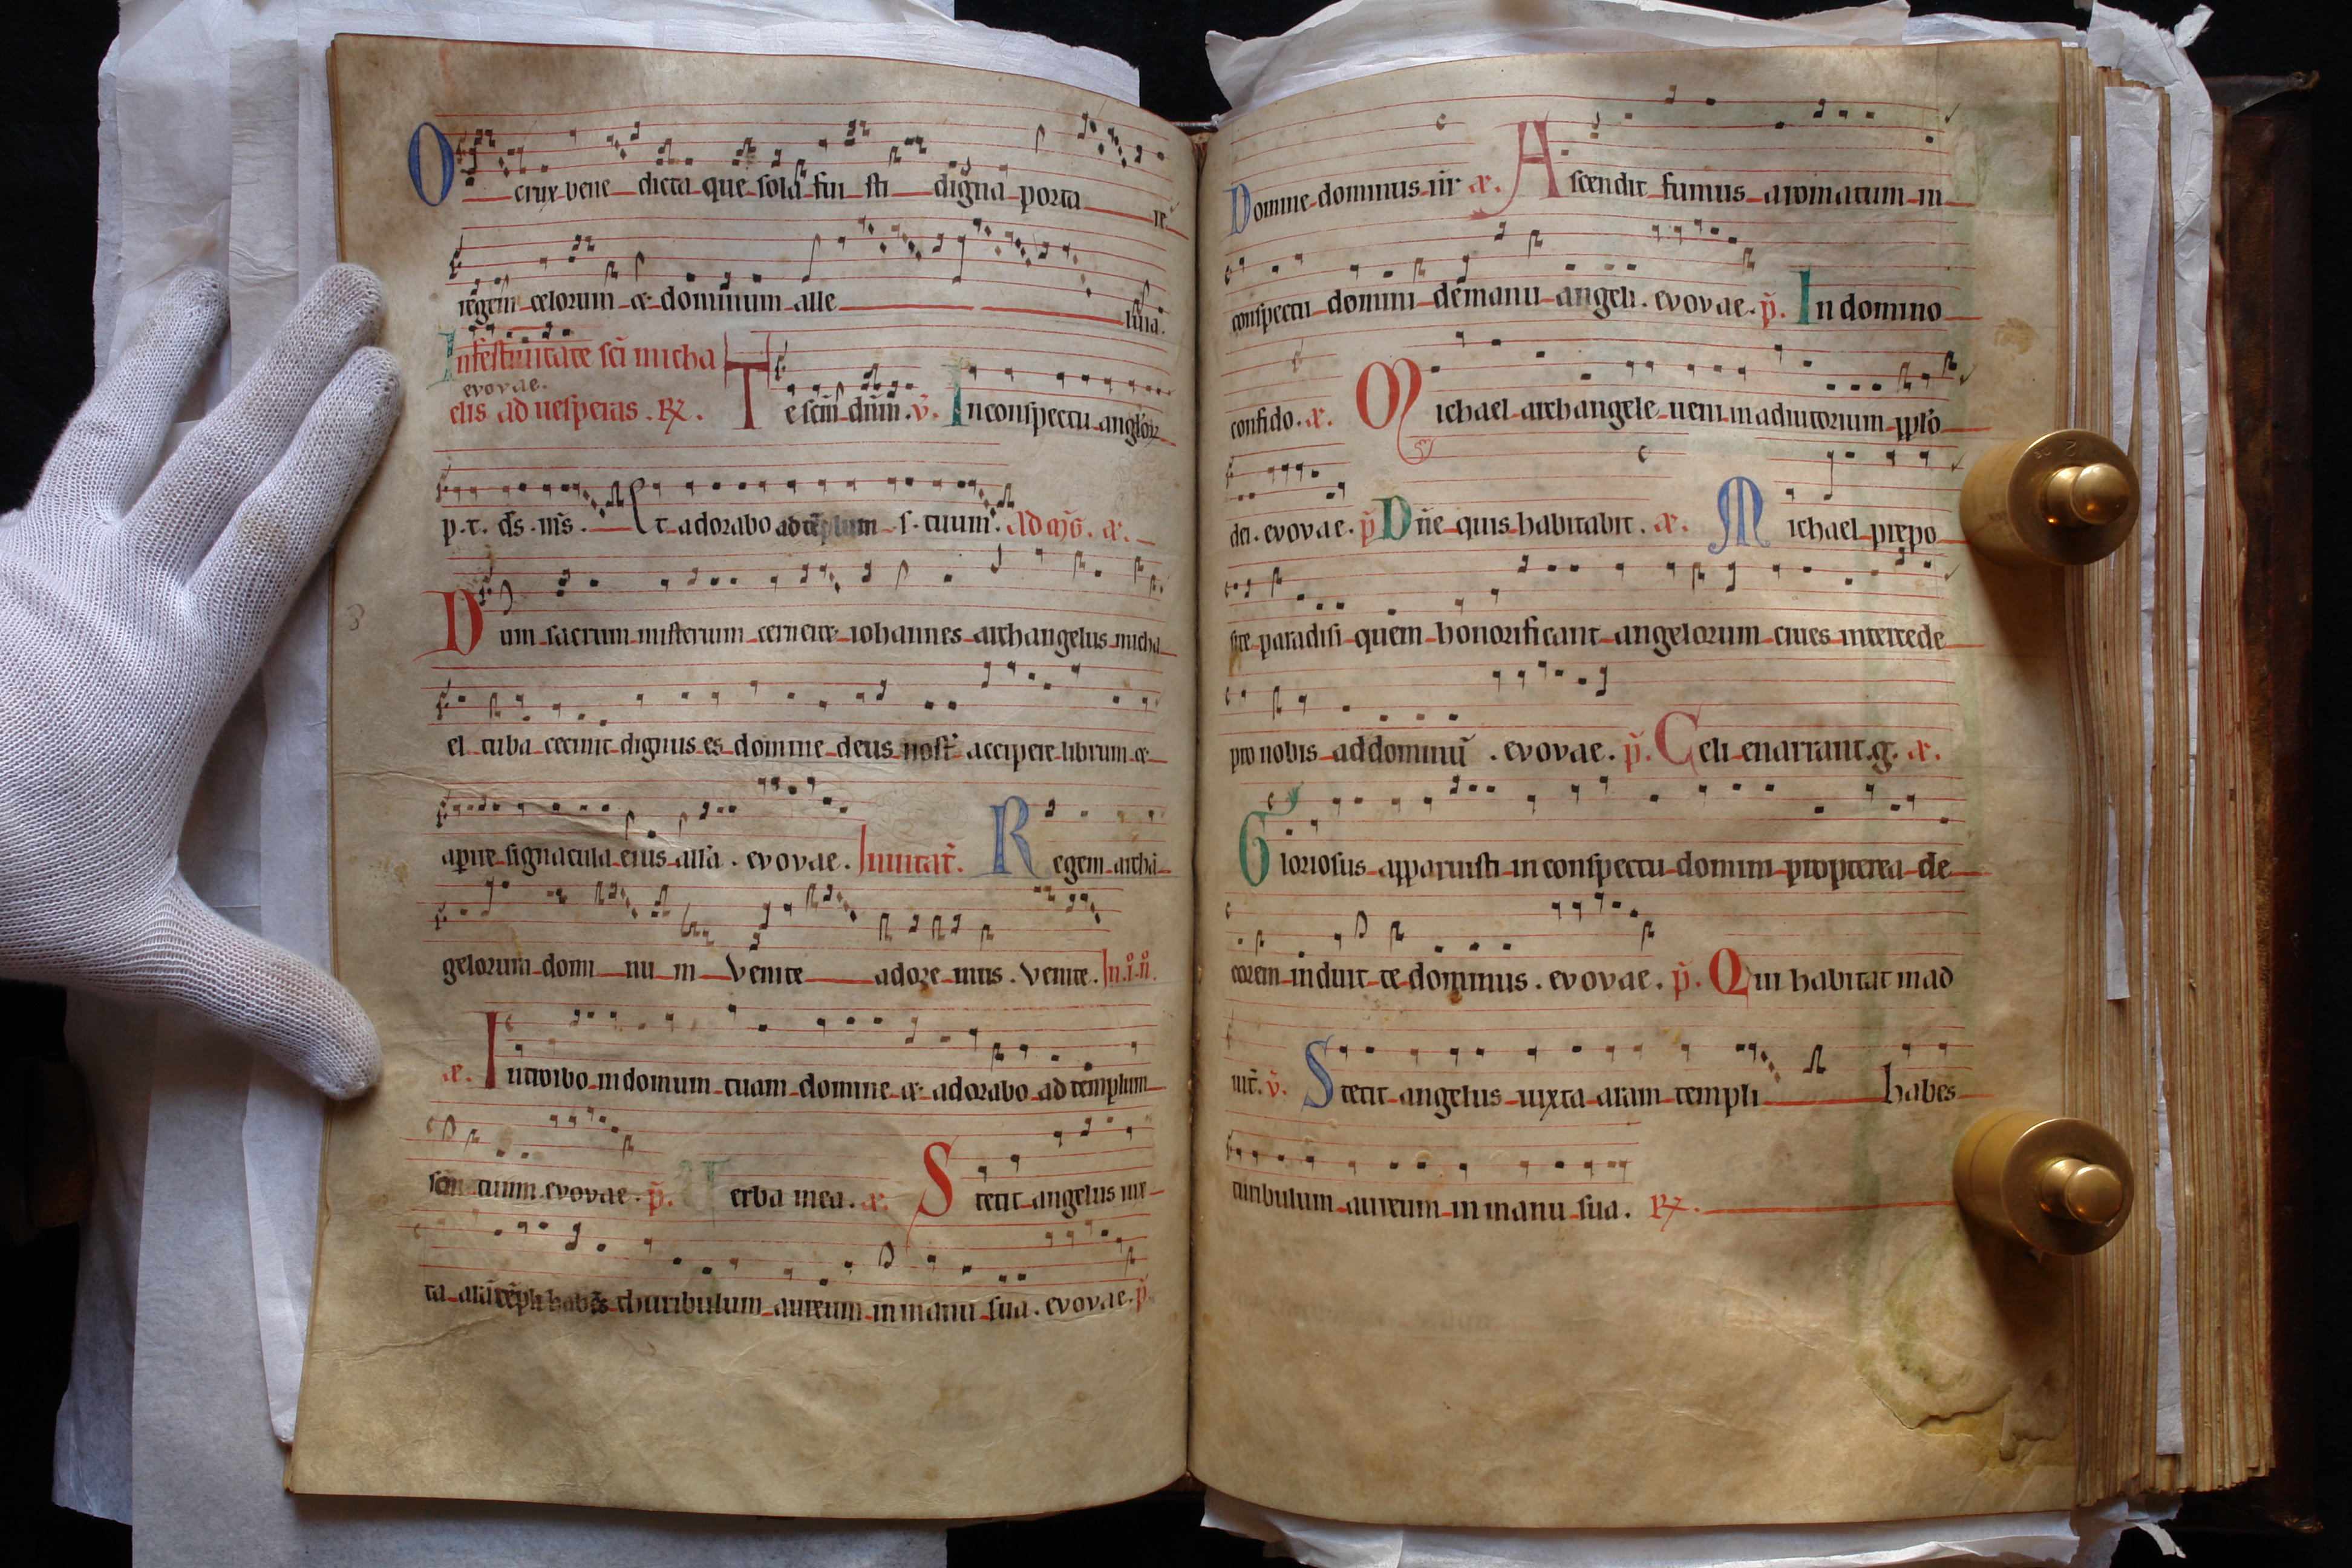 O crux bene dicta que sola fui sti digna porta re
regem celorum & dominum alle luia.
In festiuitate sci micha
evovae.
elis ad uesperas . R. Te scm dnm . v. In conspectu anglor
p. t. ds . ms . Et adorabo ad templum s. tuum . ad mg. a.
Dum sacrum misterium cerneret iohannes archangelus micha
el tuba cecinit dignus es domine deus nostr accipere librum &
aprire signacula eius alla . evovae . Inuitat. Regem archa
gelorum domi nu m Venite adore mus . Venite. In .i. n.
a. Introibo in domum tuam domine & adorabo ad templum
scm tuum evovae . p. Verba mea . a. Stetit angelus iux
ta ara templi habes thuribulum aureum in manu sua . evovae . p.
Domine dominus nr a. Ascendit fumus aromatum in
conspectu domini de manu angeli . evovae . p. In domino
confido . a. Michael archangele ueni in adiutorium pplo
dei . evovae . p Dne quis habitabit . a. Michael prepo
site paradisi quem honorificant angelorum ciues intercede
pro nobis ad dominu . evovae . p. Celi enarrant .g. a.
Gloriosus apparuisti in conspectu domini propterea de
corem induit te dominus . evovae . p. Qui habitat in ad
iut. v. Stetit angelus iuxta aram templi habes
turibulum aureum in manu sua . R.